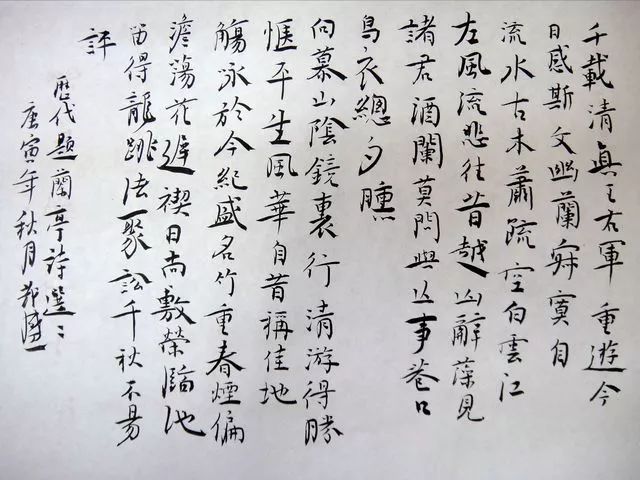 千載清真王右軍重遊今
日感斯文幽蘭寂寞自
流水古木蕭疏空白雲江
左風流悲往昔越山辭藻見
諸君酒闌莫問興亡事巷口
烏衣總夕曛
向慕山陰鏡裏行清游得勝
愜平生風華自昔稱佳地
觴詠於今紀盛名竹重春煙偏
澹蕩花遲禊日尚敷榮臨池
留得龍跳法聚訟千秋不易
評
歷代題蘭亭詩選
庚寅年秋月